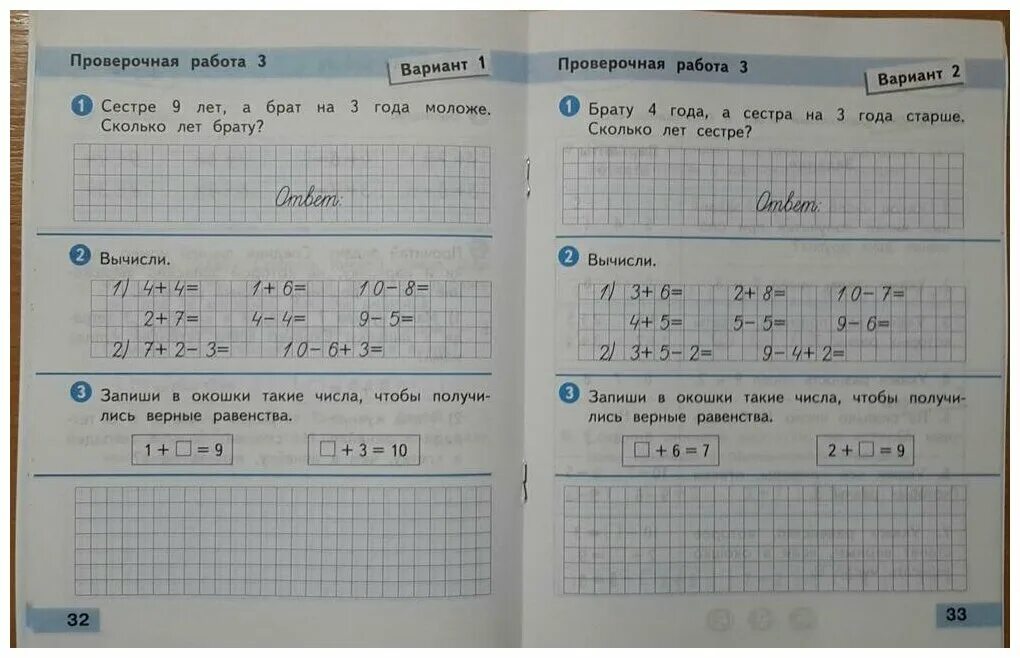 Проверочная работа 3
Вариант 1
1 Сестре 9 лет, а брат на 3 года моложе.
Сколько лет брату?
Ответ:
2 Вычисли.
1) 4+4= 1+6= 10-8=
2+7= 4-4= 9-5=
2) 7+2-3= 10-6+3=
3 Запиши в окошки такие числа, чтобы получи-
лись верные равенства.
1 + □ = 9 □ + 3 = 10
32
Проверочная работа 3
Вариант 2
1 Брату 4 года, а сестра на 3 года старше.
Сколько лет сестре?
Ответ:
2 Вычисли.
1) 3+6= 2+8= 10-7=
4+5= 5-5= 9-6=
2) 3+5-2= 9-4+2=
3 Запиши в окошки такие числа, чтобы получи-
лись верные равенства.
□ + 6 = 7 2 + □ = 9
33